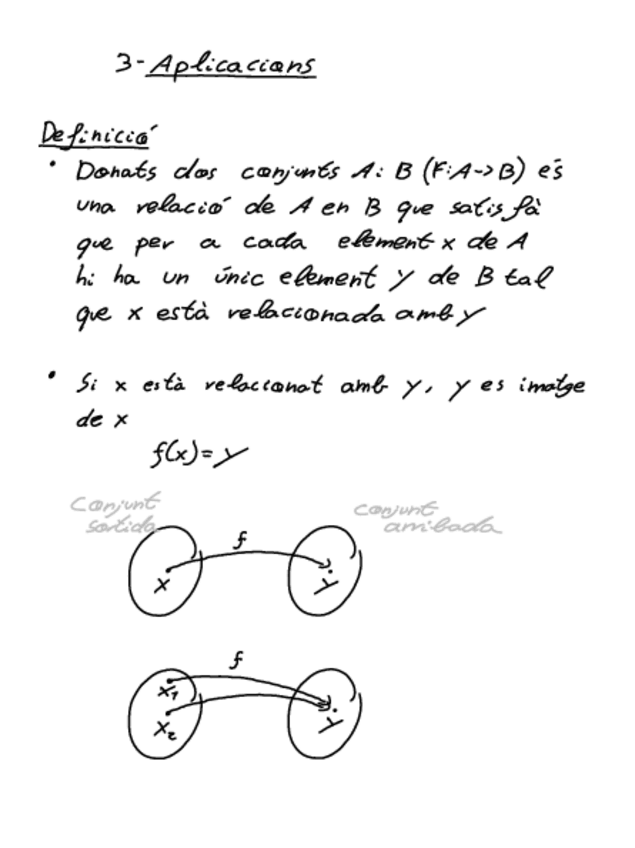 3-Aplicacions
Definició
• Donats dos conjunts A i B (F:A->B) és
una relació de A en B que satisfà
que per a cada element x de A
hi ha un únic element y de B tal
que x està relacionada amb y
• Si x està relacionat amb y, y es imatge
de x
f(x)=y
Conjunt
sortida
conjunt
arribada
f
x
y
f
x₁
x₂
y